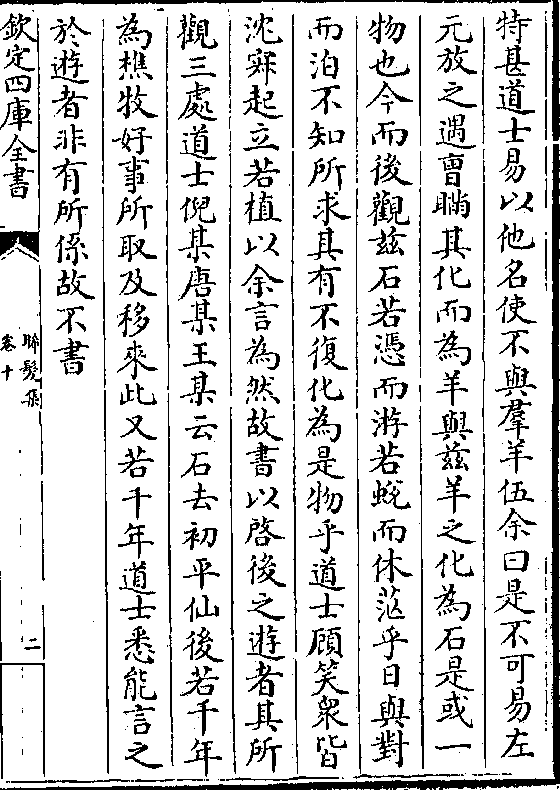 特甚道士易以他名使不與羣羊伍余曰是不可易左
元放之遇曹瞞其化而為羊與兹羊之化為石是或一
物也今而後觀兹石若憑而游若蛻而休茫乎日與對
而泊不知所求其有不復化為是物乎道士顧笑衆皆
沈寐起立若植以余言為然故書以啓後之遊者其所
觀三處道士倪某唐某王某云石去初平仙後若干年
為樵牧好事所取及移來此又若干年道士悉能言之
於遊者非有所係故不書
欽定四庫全書
晞髮集
卷十
二